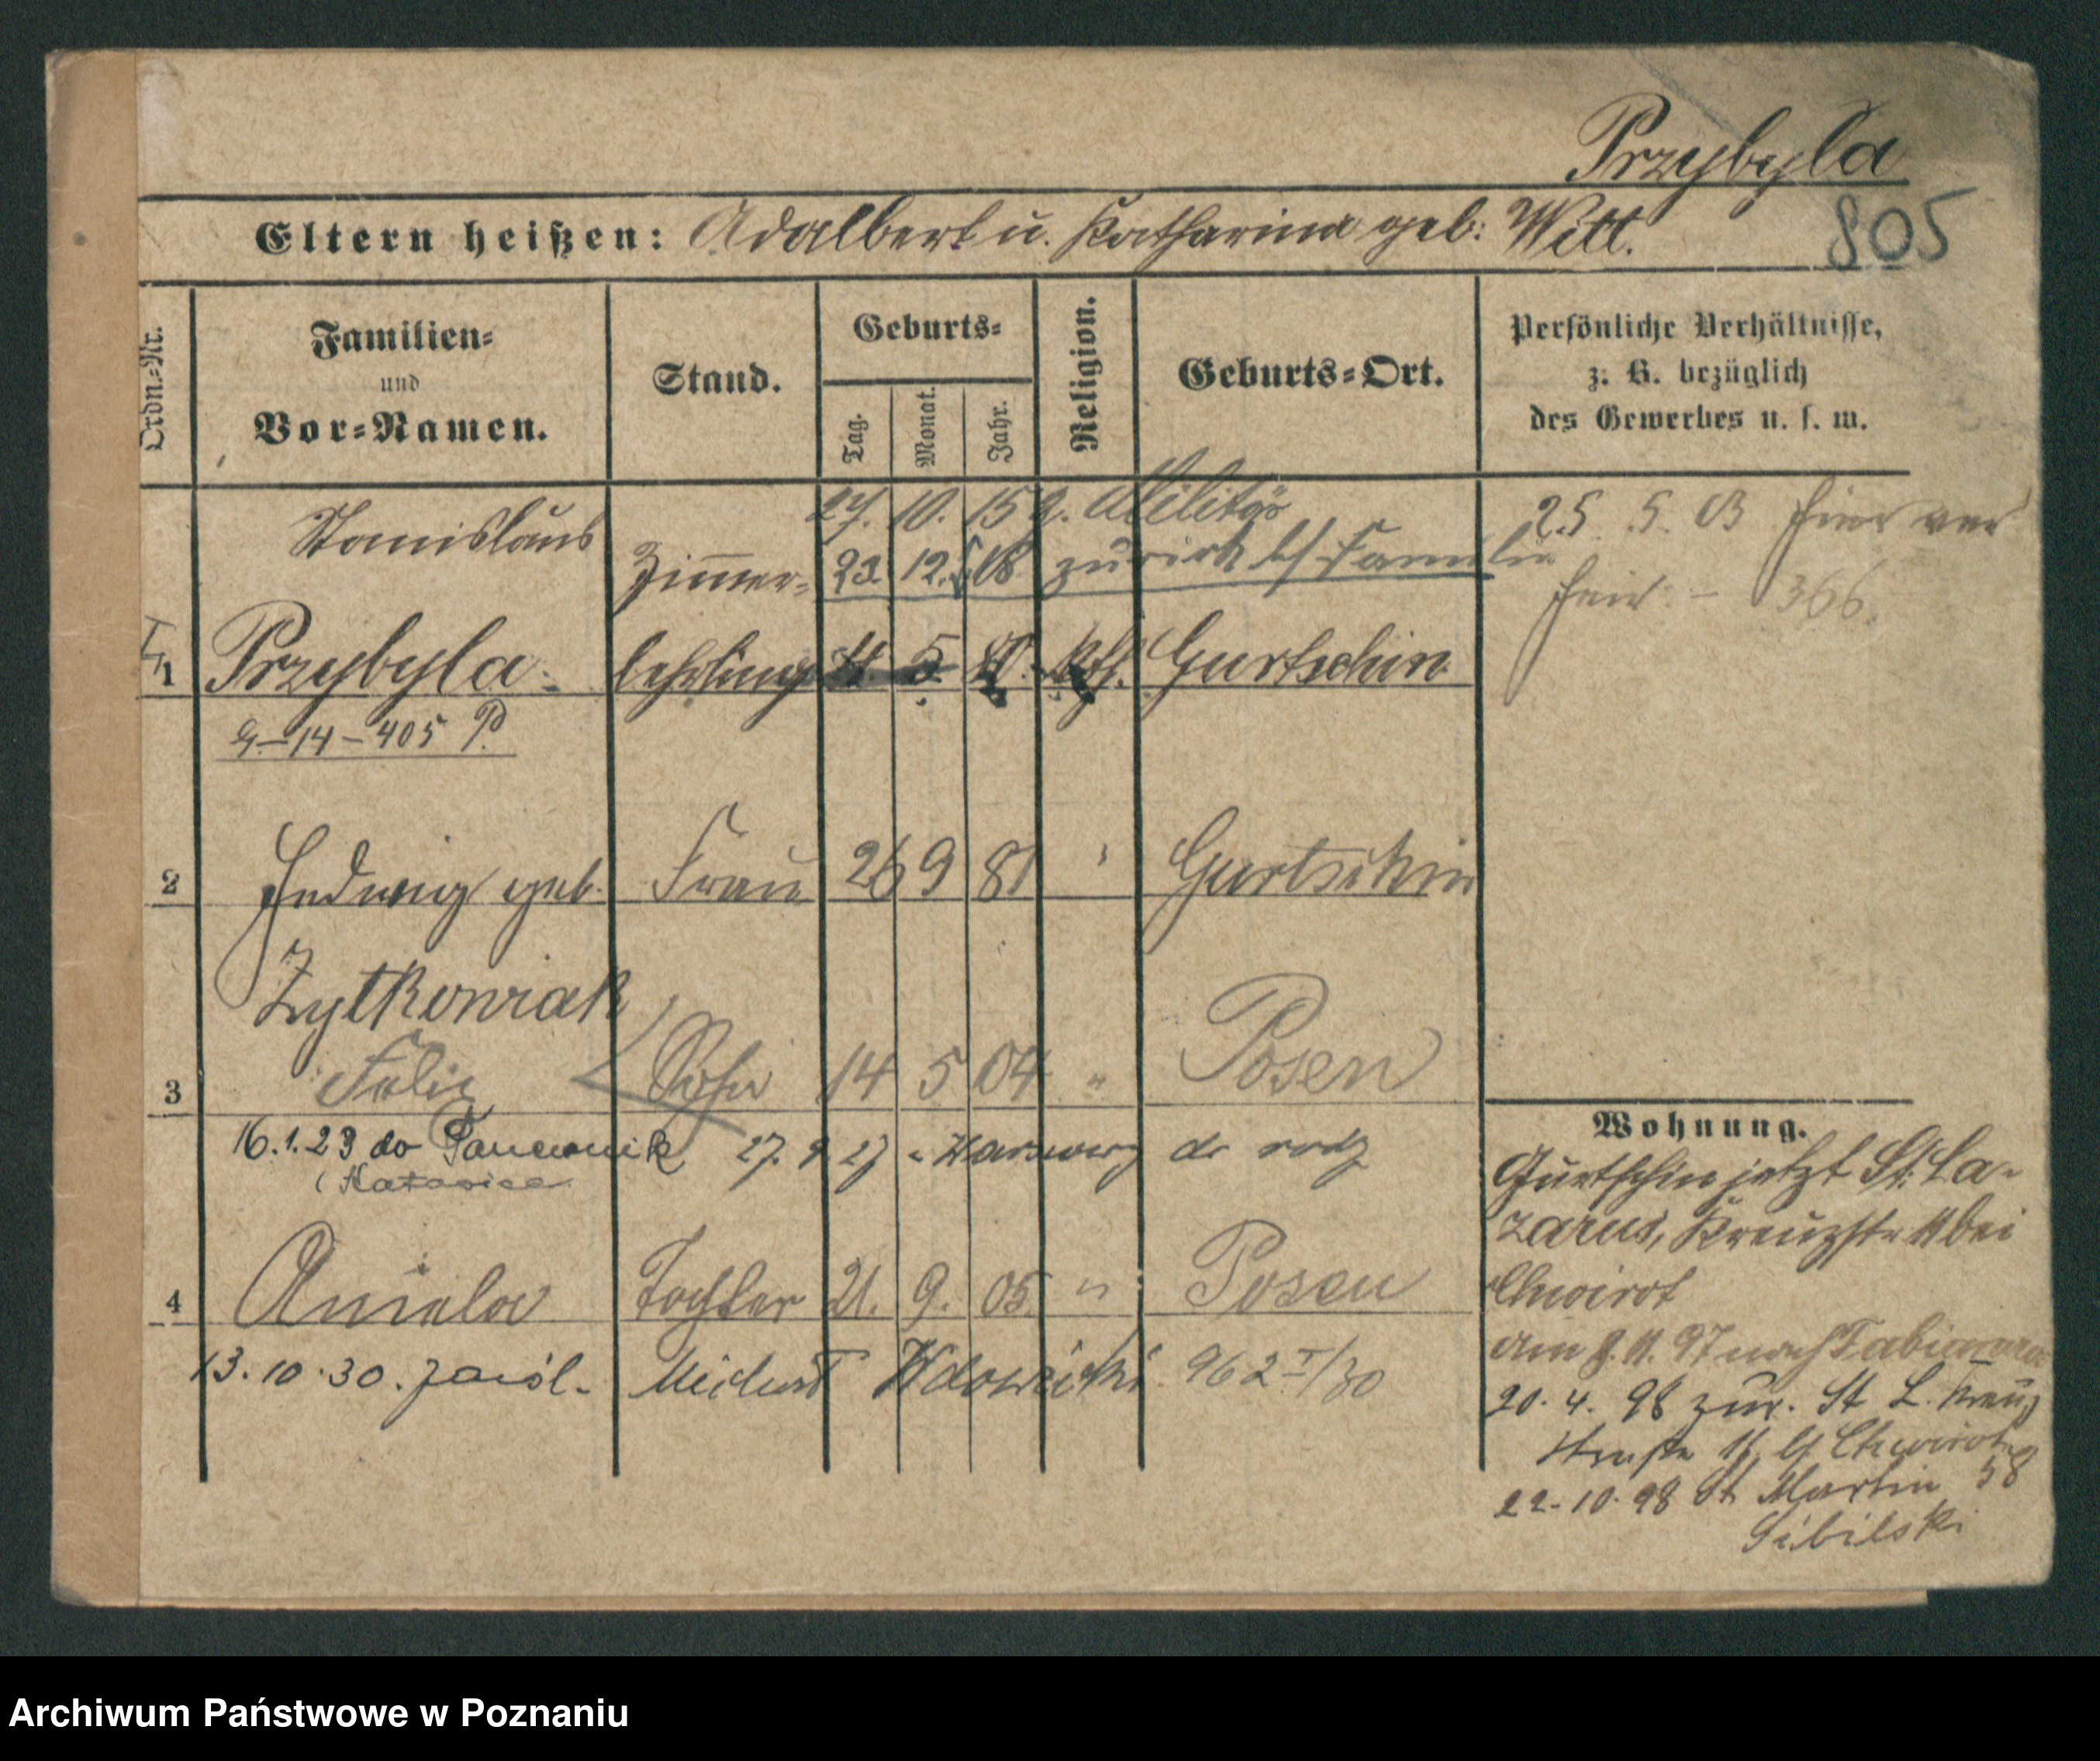 Przybyla
805
Eltern heißen: Adalbert u. Katharina geb: Witt.
Ordn.-Nr.
Familien- und Vor-Namen.
Stand.
Geburts-
Tag.
Monat.
Jahr.
Religion.
Geburts-Ort.
Persönliche Verhältnisse,
z. B. bezüglich
des Gewerbes u. s. w.
27. 10. 15 z. Militär
Stanislaus
Zimmer-
23. 12. 18 zurück b/ Familie
25 5 03 hier
366.
1 Przybyla lehrling 5 kth. Gurtschin
G-14-405 P.
2 Hedwig geb. Frau 26 9 81 " Gurtschin
Zytkowiak
3 Felix Sohn 14 5 04 " Posen
16.1.23 do
(Katowice
27. 9 27 z Warszawy do rodz
4 Aniela Tochter 21. 9. 05. " Posen
13.10.30. zaśl. Wdowicki 962 I/30
Wohnung.
Gurtschin jetzt St. La-
zarus, Kreuzstr 11 bei
Chwirot
am 8. 11. 97 nach
20. 4. 98 zur. St L. Kreuz
strasse 11 b/ Chwirot
22-10-98 St Martin 58
Sibilski
Archiwum Państwowe w Poznaniu